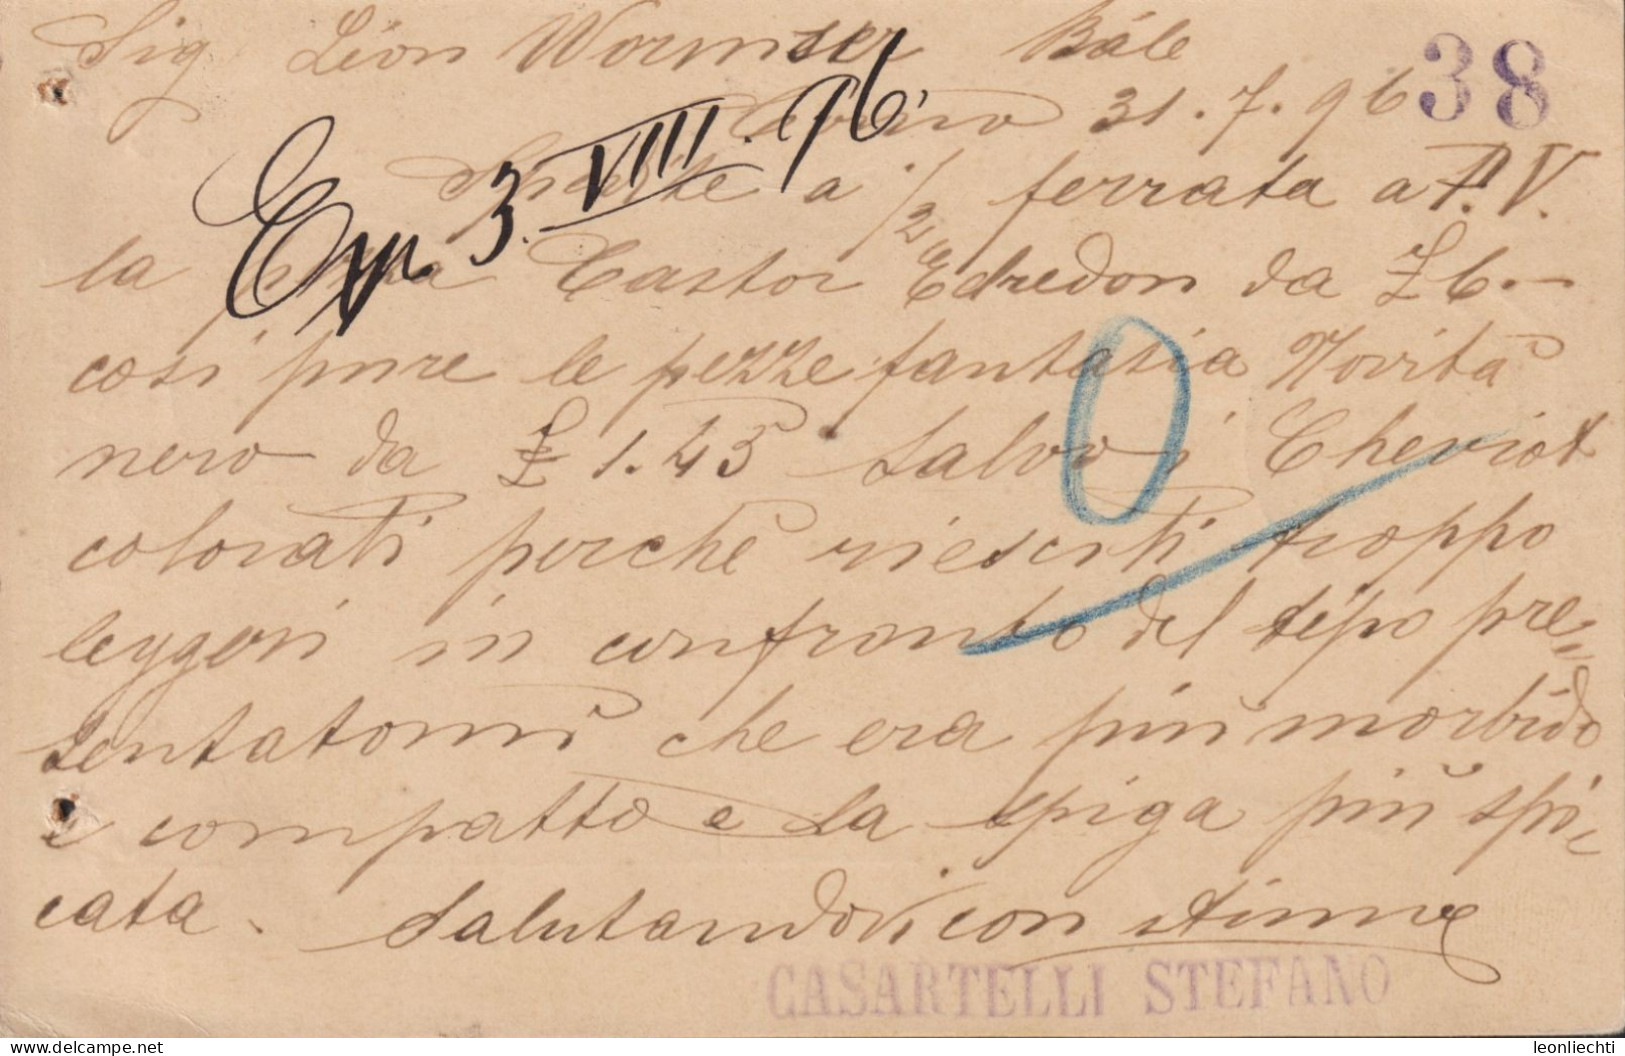 Sig Léon Wormser Bâle
38
31.7.96
Exp 3.VIII.96
Spedite a 1/2 ferrata a P.V.
la pezza Castor Edredon da £ 6.-
così pure le pezze fantasia Novità
nero da £ 1.45 salvo i Cheviot
colorati perchè riesciti troppo
leggeri in confronto del tipo pre=
sentatomi che era più morbido
e compatto e la spiga più spi=
cata. Salutandovi con stima
0
CASARTELLI STEFANO
leonliechti
delcampe.net